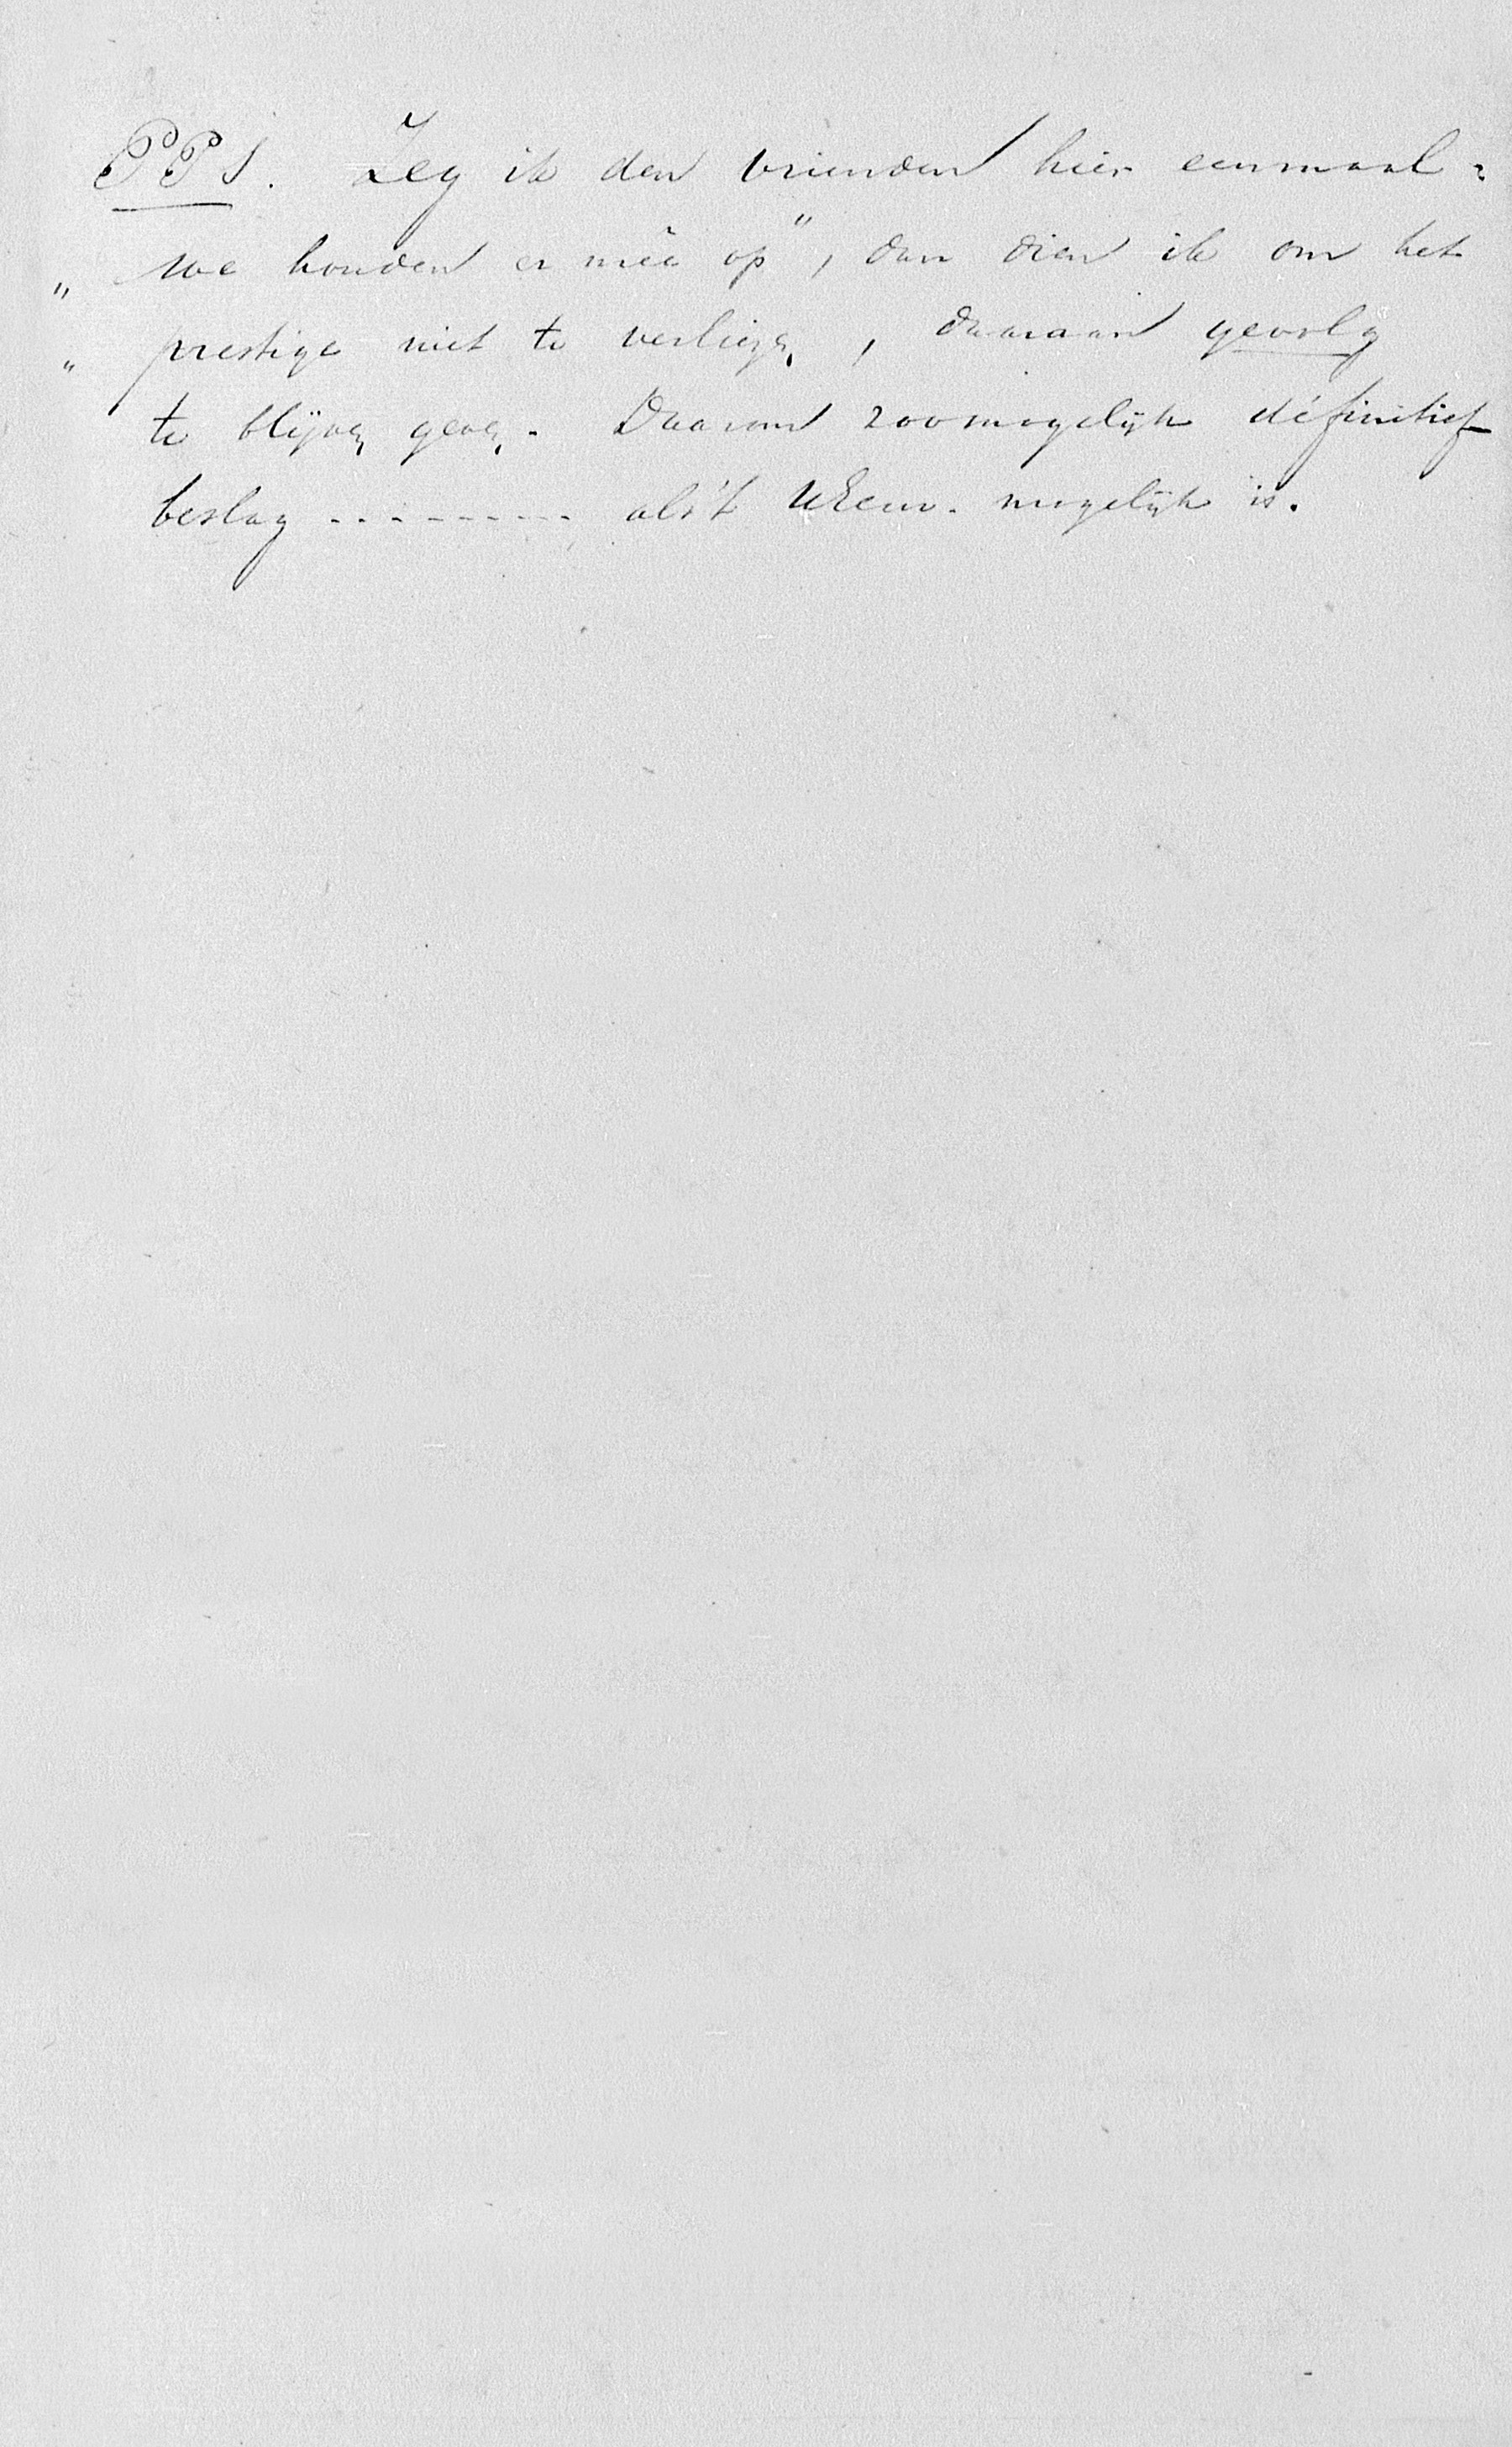 PPS. Zeg ik den vrienden hier eenmaal:
„we houden er mêe op", dan dien ik om het
„prestige niet te verliezen, daaraan gevolg
te blijven geven. Daarom zoomogelijk définitief
beslag --------- als 't UEew. mogelijk is.